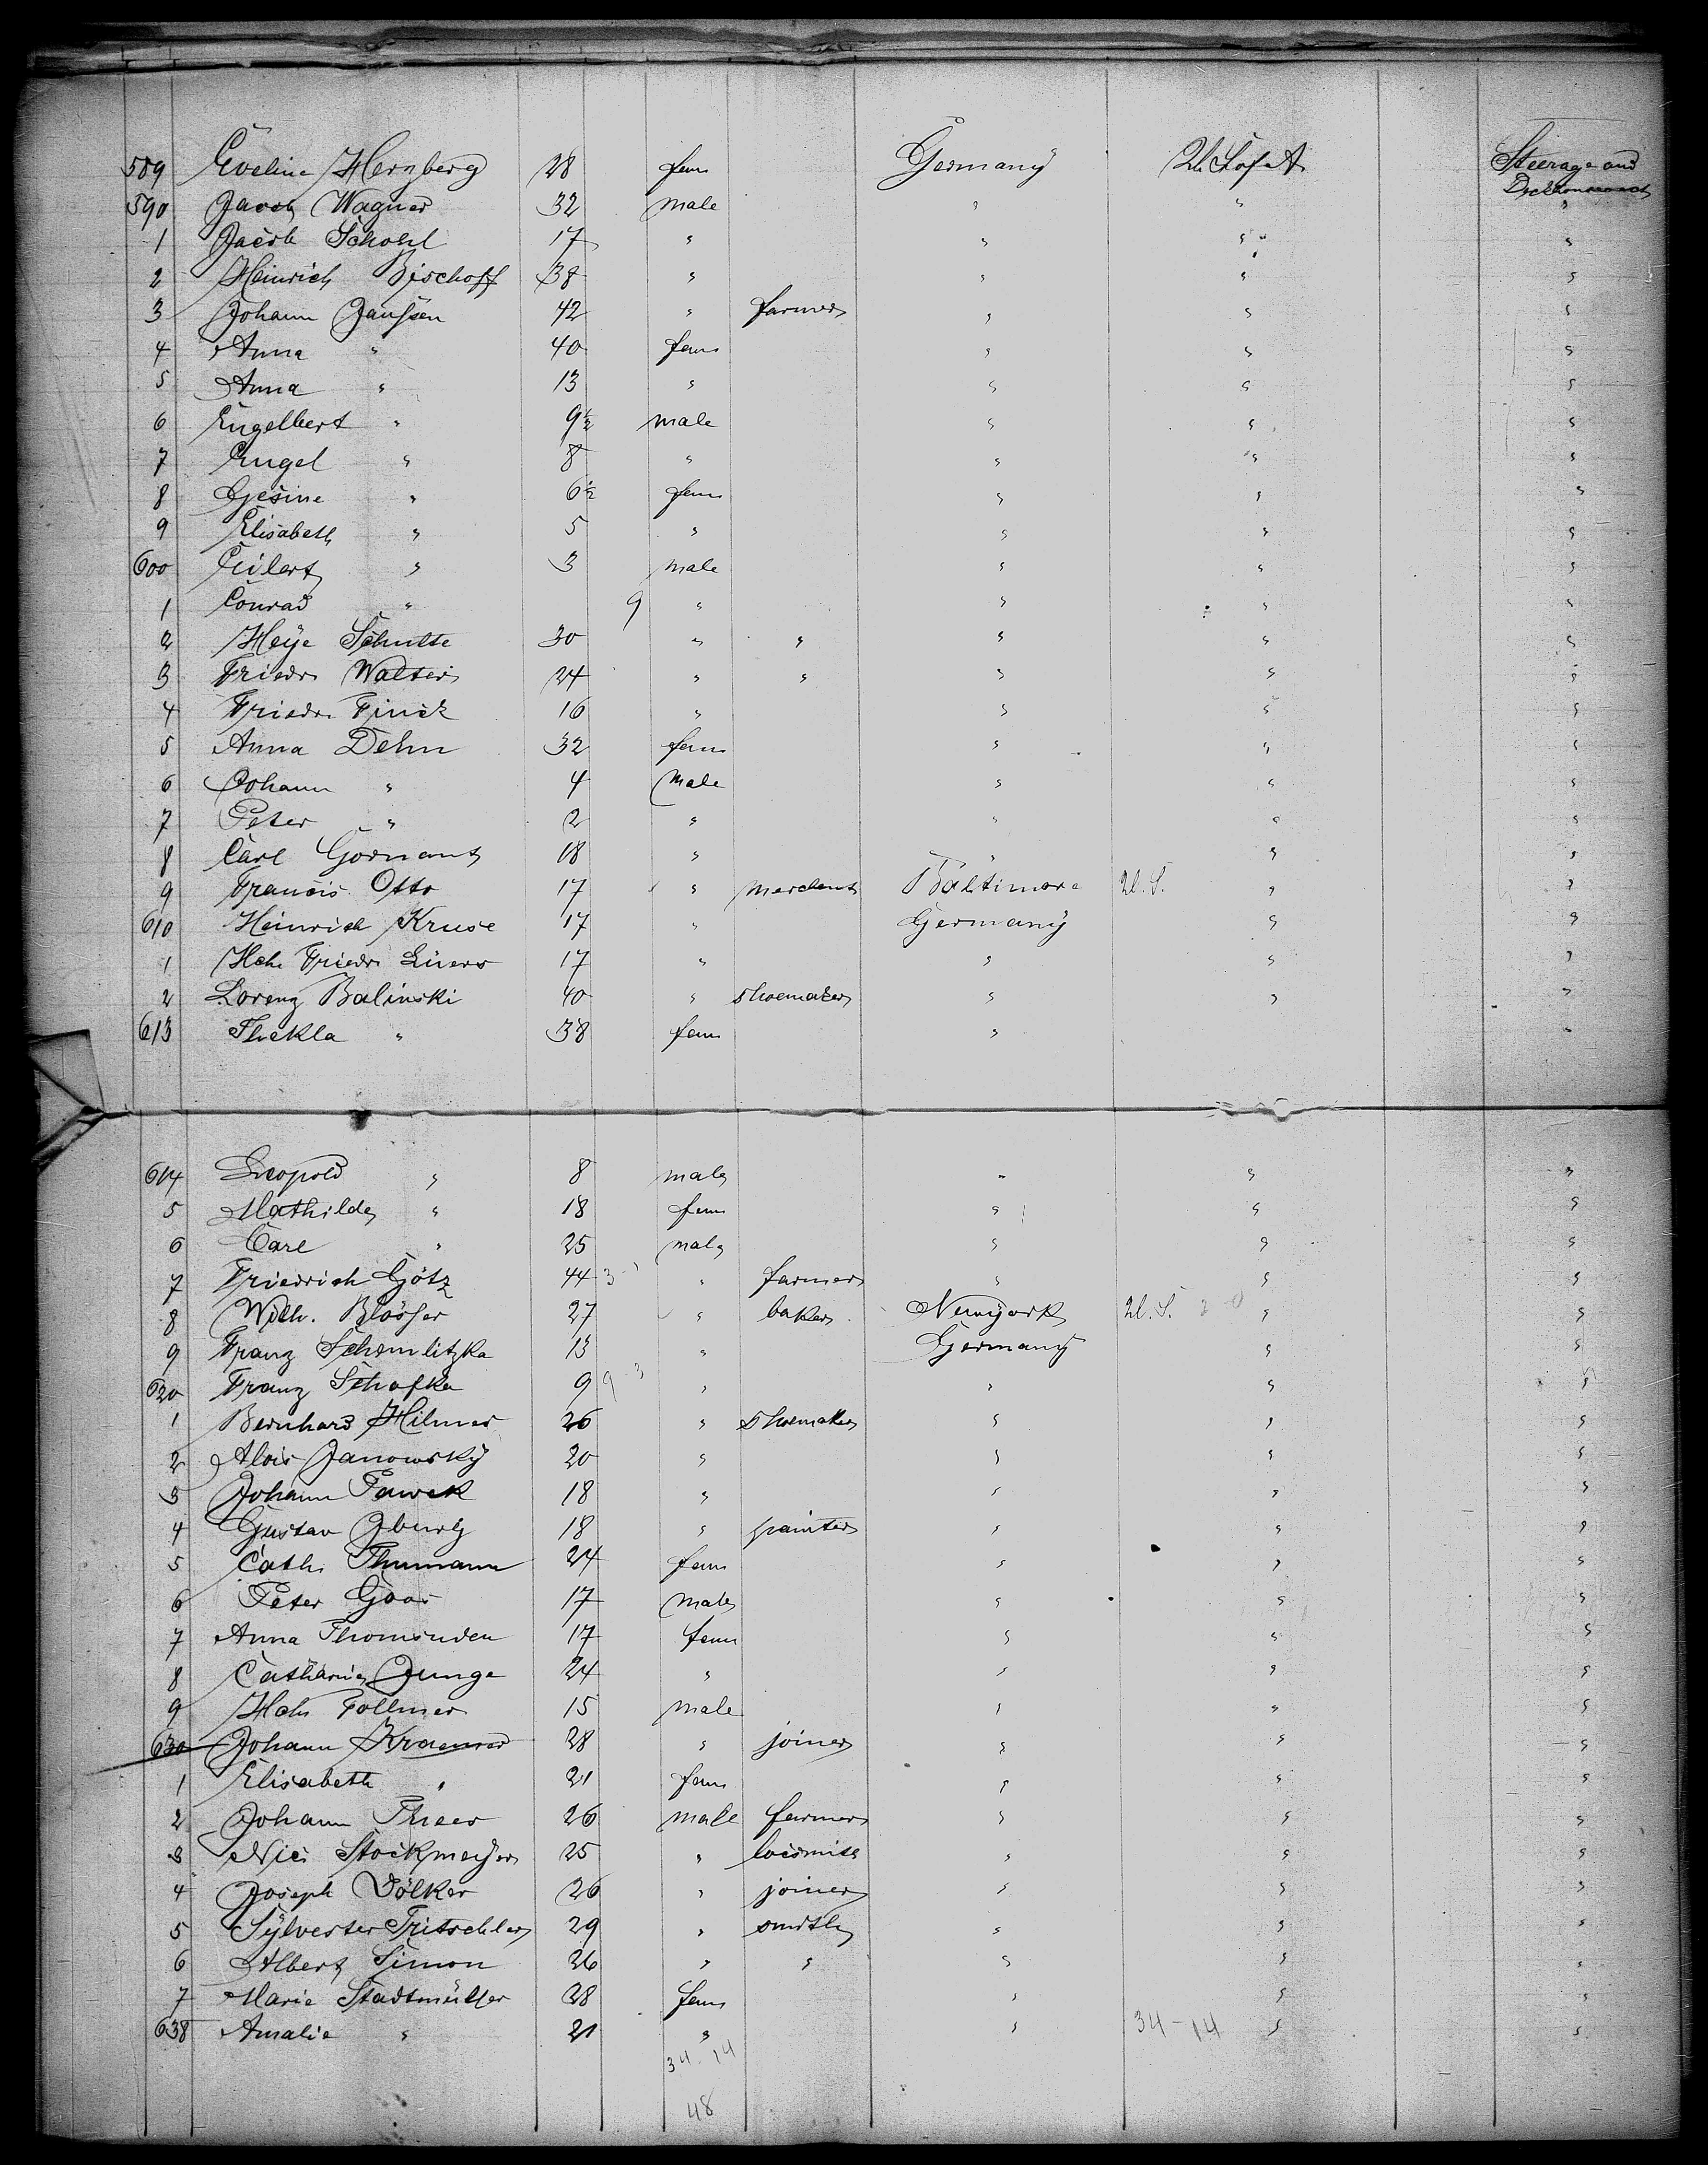 589 Eveline Herzberg 28 fem Germany U. S. of A. Steerage and
590 Jacob Wagner 32 male " " "
1 Jacob Schohl 17 " " " "
2 Heinrich Bischoff 38 " " " "
3 Johann Janssen 42 " farmer " " "
4 Anna " 40 fem " " "
5 Anna " 13 " " " "
6 Engelbert " 9½ male " " "
7 Engel " 8 " " " "
8 Gesine " 6½ fem " " "
9 Elisabeth " 5 " " " "
600 Eilert " 3 male " " "
1 Conrad " 9 " " " "
2 Heye Schulte 30 " " " " "
3 Friedr. Walter 24 " " " " "
4 Friedr. Finck 16 " " " "
5 Anna Dehn 32 fem " " "
6 Johann " 4 male " " "
7 Peter " 2 " " " "
8 Carl 18 " " " "
9 Francis Otto 17 " merchant Baltimore U. S. " "
610 Heinrich Kruse 17 " Germany " "
1 Hch. Friedr. Lüers 17 " " " "
2 Lorenz Balinski 40 " shoemaker " " "
613 Thekla " 38 fem " "
614 Leopold " 8 male " " "
5 Mathilde " 18 fem " " "
6 Carl " 25 male " " "
7 Friedrich Götz 44 " farmer " " "
8 Wilh. Blösser 27 " baker Newyork U. S. " "
9 Franz Schemlitzka 13 " Germany " "
620 Franz Schafka 9 9 " " " "
1 Bernhard Hilmer 26 " shoemaker " " "
2 Alois Janowsky 20 " " " "
3 Johann Pawek 18 " " " "
4 Gustav Iburg 18 " painter " " "
5 Cath. Thumann 24 fem " " "
6 Peter Goos 17 male " " "
7 Anna 17 fem " " "
8 Catharine Junge 24 " " " "
9 Hch. Follmer 15 male " " "
630 Johann Kraemer 28 " joiner " " "
1 Elisabeth " 21 fem " " "
2 Johann Theer 26 male farmer " " "
3 Nic. Stockmeyer 25 " locsmith " " "
4 Joseph Völker 26 " joiner " " "
5 Sylvester Tritschler 29 " smith " " "
6 Albert Simon 26 " " " " "
7 Marie Stadtmüller 28 fem " " "
638 Amalie " 21 " " 34-14 " "
34-14
48